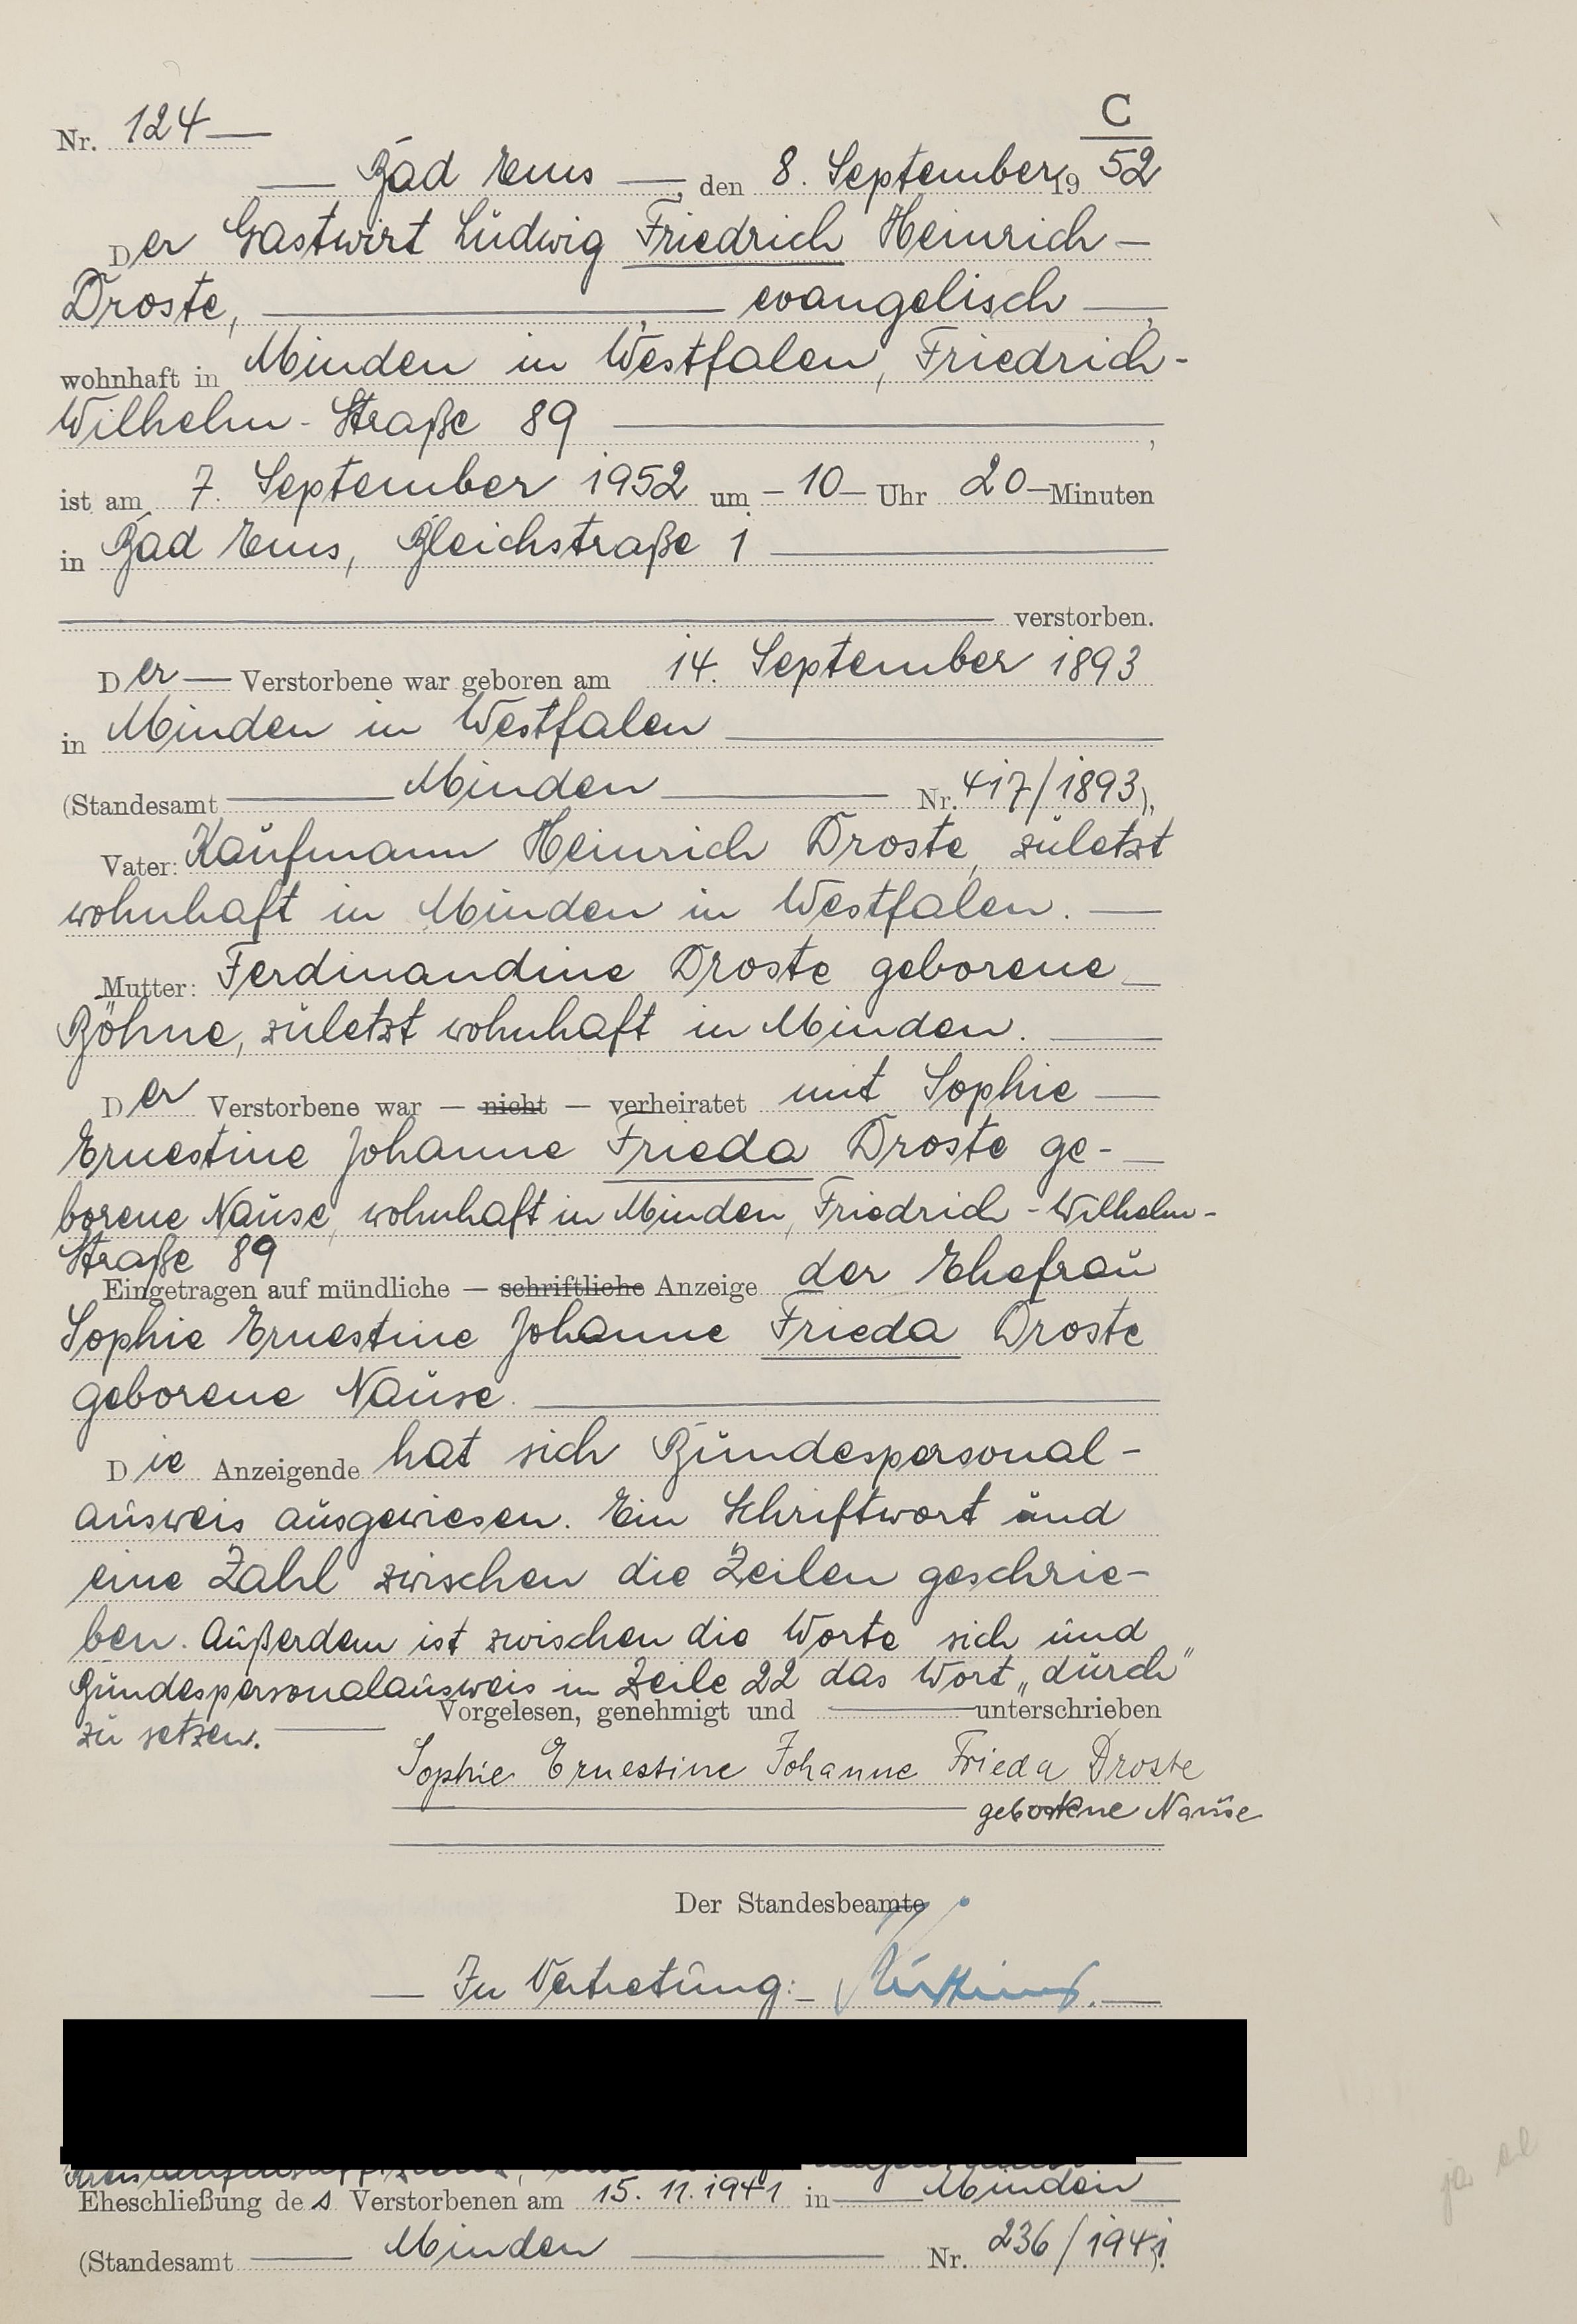 C
Nr. 124
Bad Ems, den 8. September 19 52
Der Gastwirt Ludwig Friedrich Heinrich
Droste, evangelisch,
wohnhaft in Minden in Westfalen, Friedrich-
Wilhelm-Straße 89,
ist am 7. September 1952 um 10 Uhr 20 Minuten
in Bad Ems, Bleichstraße 1
verstorben.
Der Verstorbene war geboren am 14. September 1893
in Minden in Westfalen
(Standesamt Minden Nr. 417/1893),
Vater: Kaufmann Heinrich Droste, zuletzt
wohnhaft in Minden in Westfalen.
Mutter: Ferdinandine Droste geborene
Böhne, zuletzt wohnhaft in Minden.
Der Verstorbene war — nicht — verheiratet mit Sophie
Ernestine Johanne Frieda Droste ge-
borene Nause, wohnhaft in Minden, Friedrich-Wilhelm-
Straße 89
Eingetragen auf mündliche — schriftliche Anzeige der Ehefrau
Sophie Ernestine Johanne Frieda Droste
geborene Nause.
Die Anzeigende hat sich Bundespersonal-
ausweis ausgewiesen. Ein Schriftwort und
eine Zahl zwischen die Zeilen geschrie-
ben. Außerdem ist zwischen die Worte sich und
Bundespersonalausweis in Zeile 22 das Wort „durch"
zu setzen.
Vorgelesen, genehmigt und unterschrieben
Sophie Ernestine Johanne Frieda Droste
geborene Nause
Der Standesbeamte
In Vertretung:
Eheschließung des Verstorbenen am 15. 11. 1941 in Minden
(Standesamt Minden Nr. 236/1941).